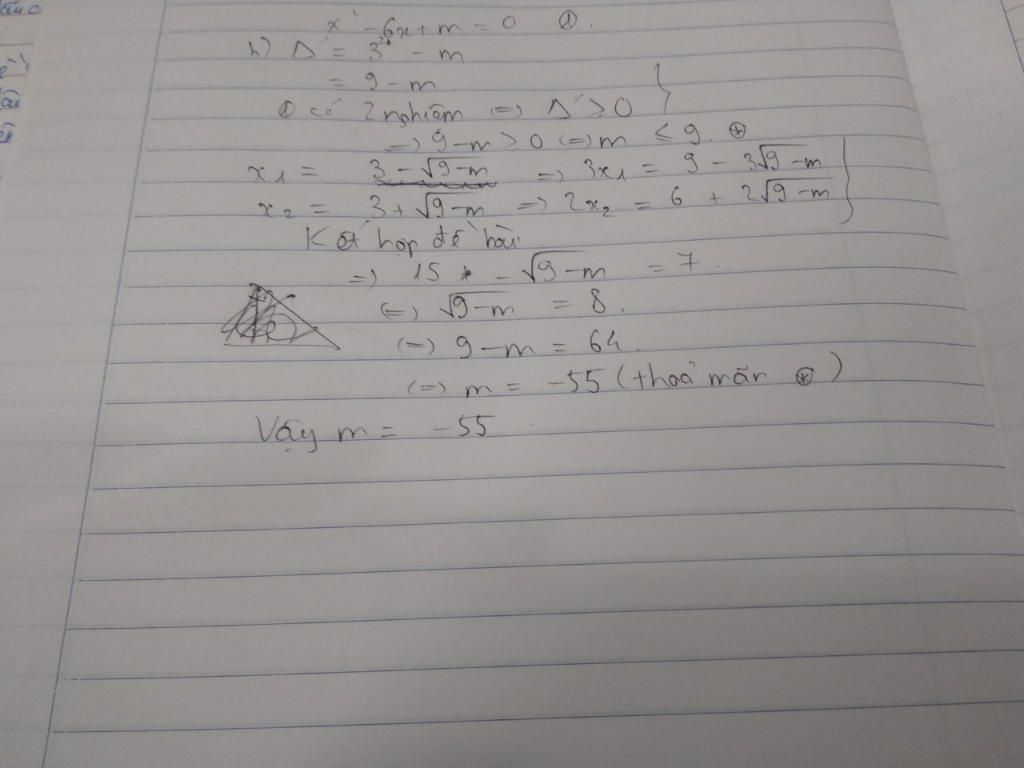 x² - 6x + m = 0 ①.
b) Δ' = 3² - m
= 9 - m
① có 2 nghiệm => Δ' ≥ 0
=> 9 - m ≥ 0 <=> m ≤ 9. ⊛
x₁ = 3 - √9-m => 3x₁ = 9 - 3√9-m
x₂ = 3 + √9-m => 2x₂ = 6 + 2√9-m
Kết hợp đề bài
=> 15 - √9-m = 7.
<=> √9-m = 8.
<=> 9 - m = 64.
<=> m = -55 (thoả mãn ⊛)
Vậy m = -55